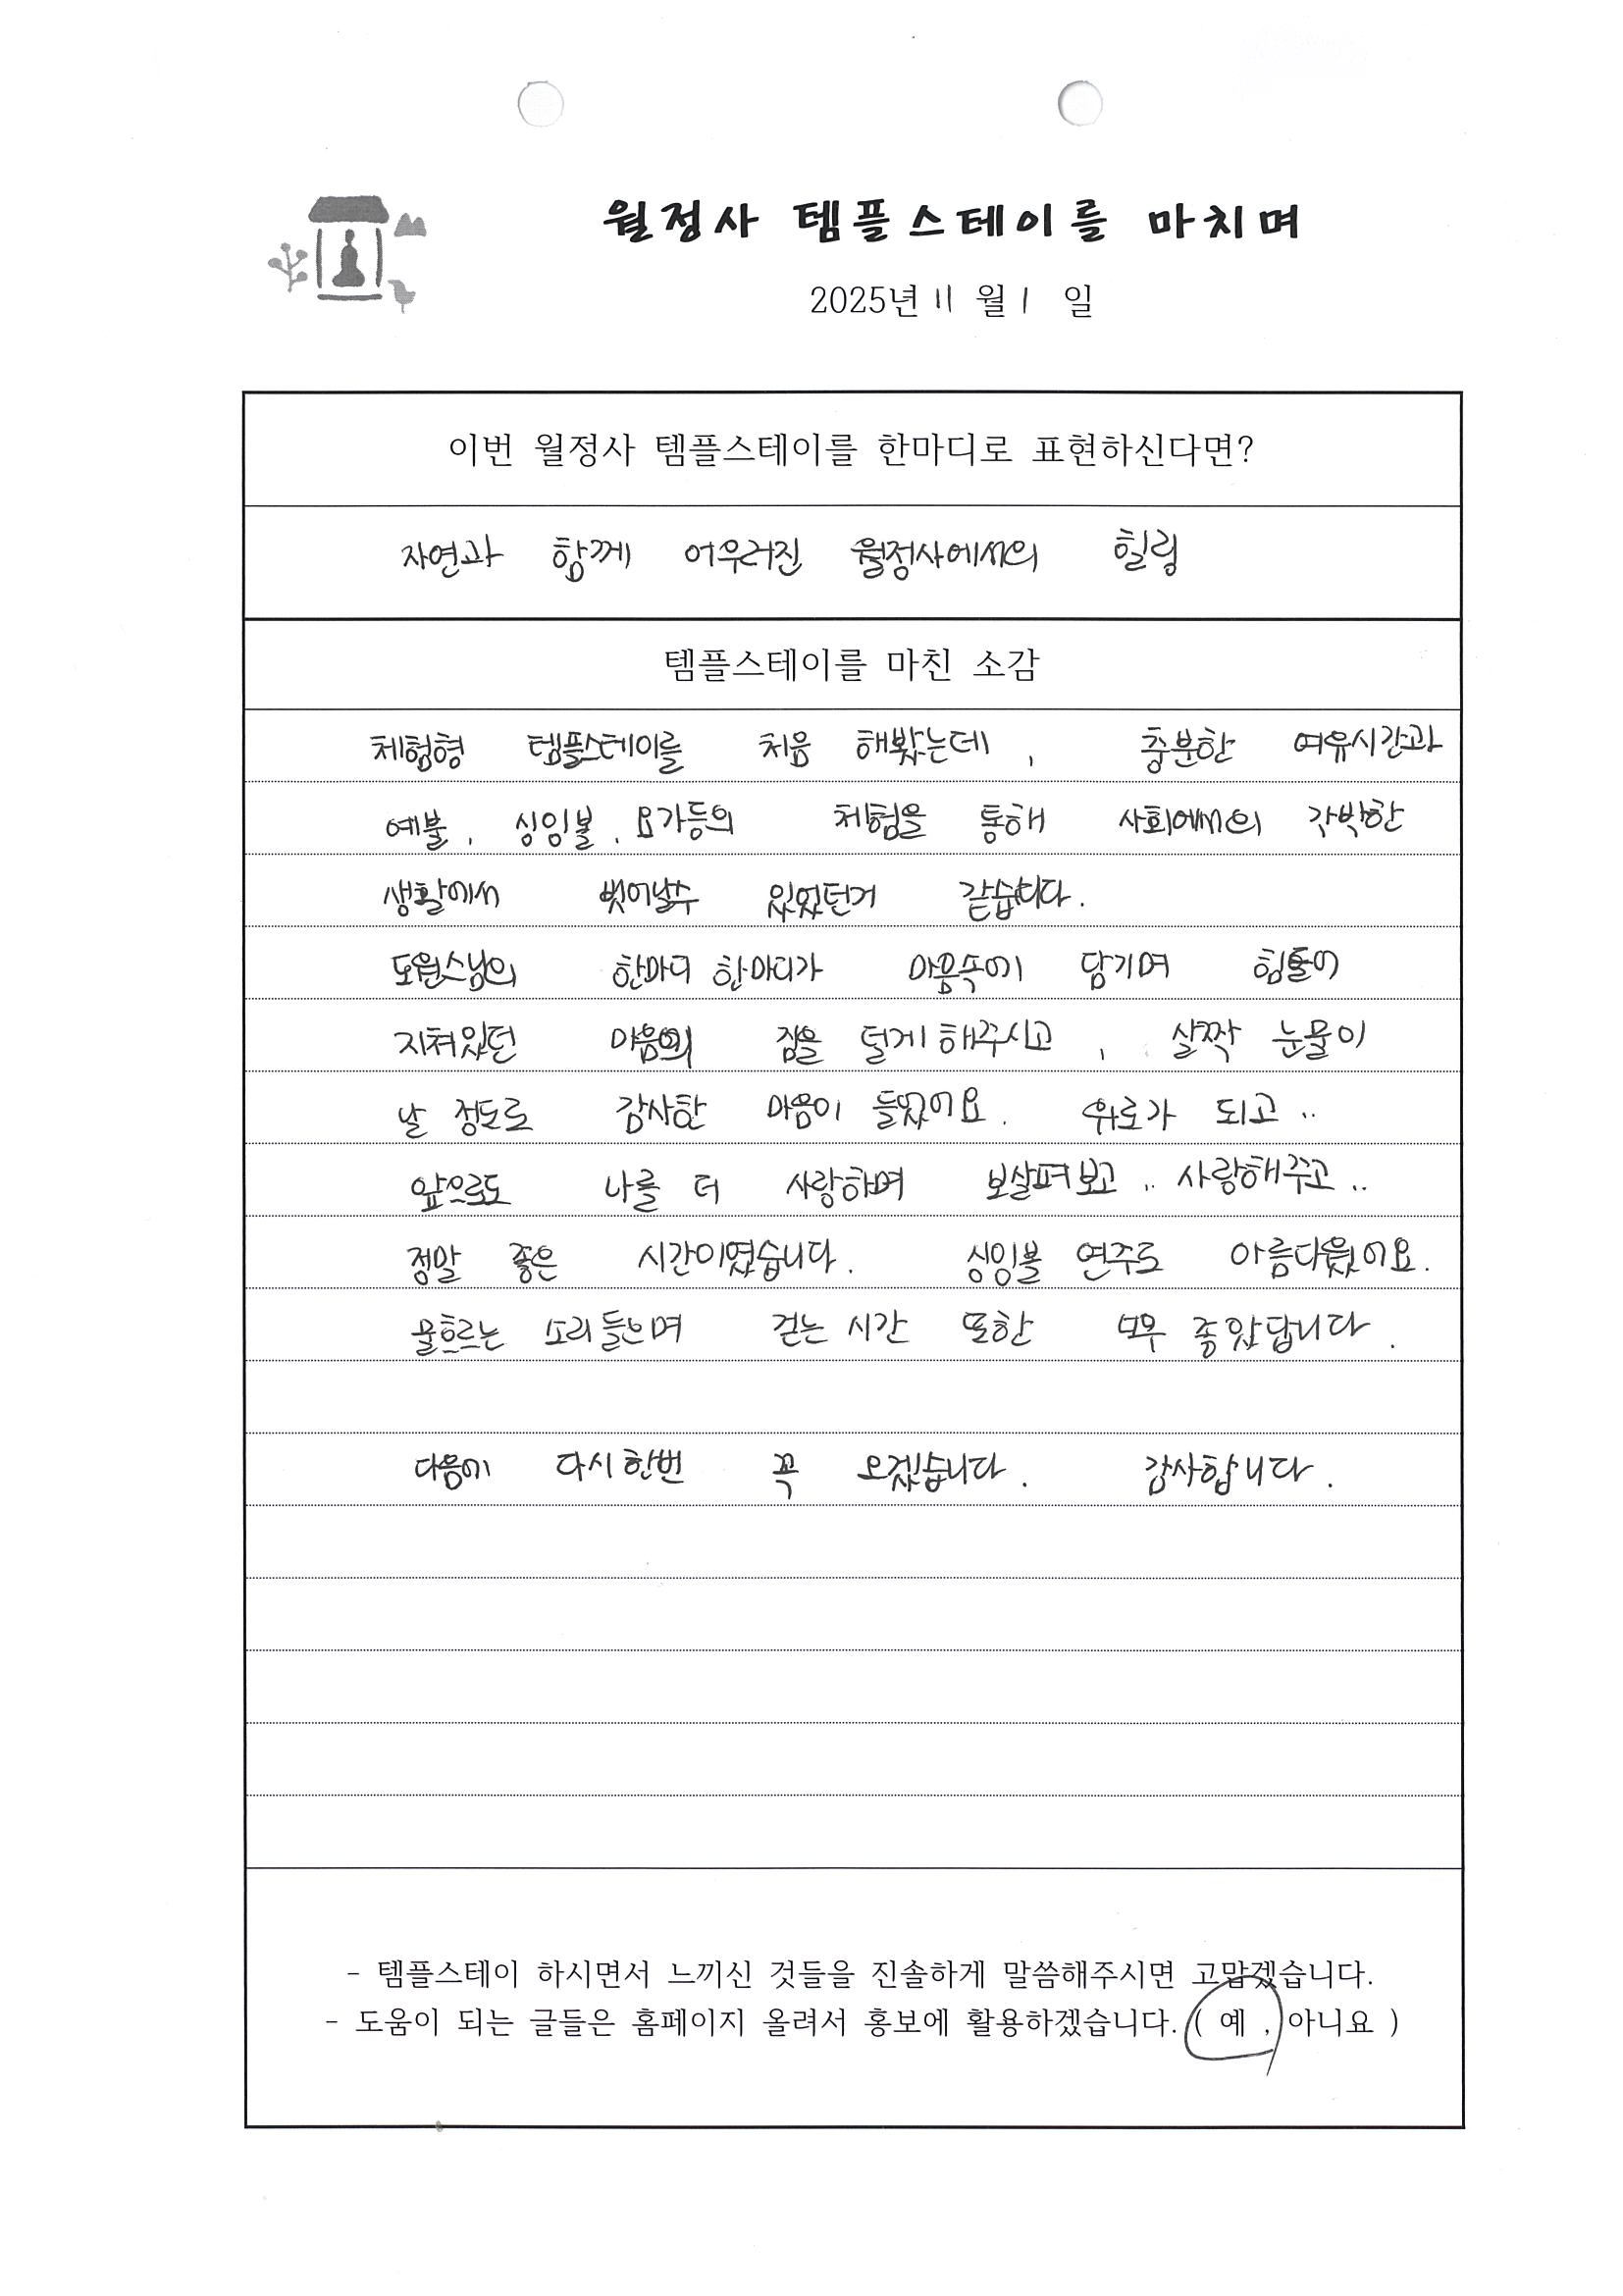 월정사 템플스테이를 마치며
2025년 11 월 1 일
이번 월정사 템플스테이를 한마디로 표현하신다면?
자연과 함께 어우러진 월정사에서의 힐링
템플스테이를 마친 소감
체험형 템플스테이를 처음 해봤는데, 충분한 여유시간과
예불, 싱잉볼, 요가등의 체험을 통해 사회에서의 각박한
생활에서 벗어날수 있었던거 같습니다.
도원스님의 한마디 한마디가 마음속에 담기며 힘들어
지쳐있던 마음의 짐을 덜게 해주시고, 살짝 눈물이
날 정도로 감사한 마음이 들었어요. 위로가 되고..
앞으로도 나를 더 사랑하며 보살펴보고.. 사랑해주고..
정말 좋은 시간이였습니다. 싱잉볼 연주도 아름다웠어요.
물흐르는 소리 들으며 걷는 시간 또한 너무 좋았답니다.
다음에 다시한번 꼭 오겠습니다. 감사합니다.
- 템플스테이 하시면서 느끼신 것들을 진솔하게 말씀해주시면 고맙겠습니다.
- 도움이 되는 글들은 홈페이지 올려서 홍보에 활용하겠습니다. ( 예 , 아니요 )